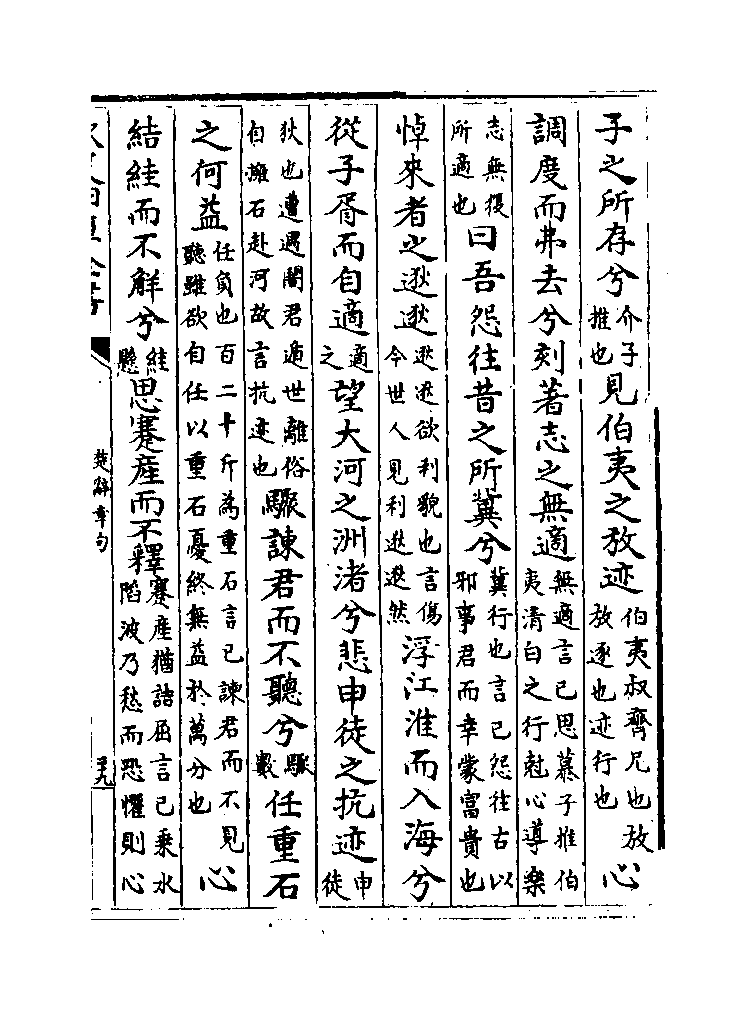 子之所存兮介子推也見伯夷之放迹伯夷叔齊兄也放放逐也迹行也心
調度而弗去兮刻著志之無適無適言已思慕子推伯夷清白之行尅心導樂
志無復所適也曰吾怨往昔之所冀兮冀行也言已怨往古以邪事君而幸蒙富貴也
悼來者之逖逖逖逖欲利貌也言傷今世人見利逖逖然浮江淮而入海兮
從子胥而自適適之望大河之洲渚兮悲申徒之抗迹申徒
狄也遭遇闇君遁世離俗自擁石赴河故言抗迹也驟諫君而不聽兮驟數任重石
之何益任負也百二十斤為重石言已諫君而不見聽雖欲自任以重石憂終無益於萬分也心
結絓而不解兮絓懸思蹇産而不釋蹇産猶詰屈言已乗水蹈波乃愁而恐懼則心
楚辭章句